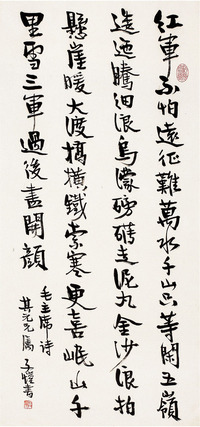 紅軍不怕遠征難萬水千山只等閑五嶺
逶迤騰細浪烏濛磅礴走泥丸金沙浪拍
懸崖暖大渡橋橫鐵索寒更喜岷山千
里雪三軍過後盡開顏
毛主席詩
其元兄屬 子愷書